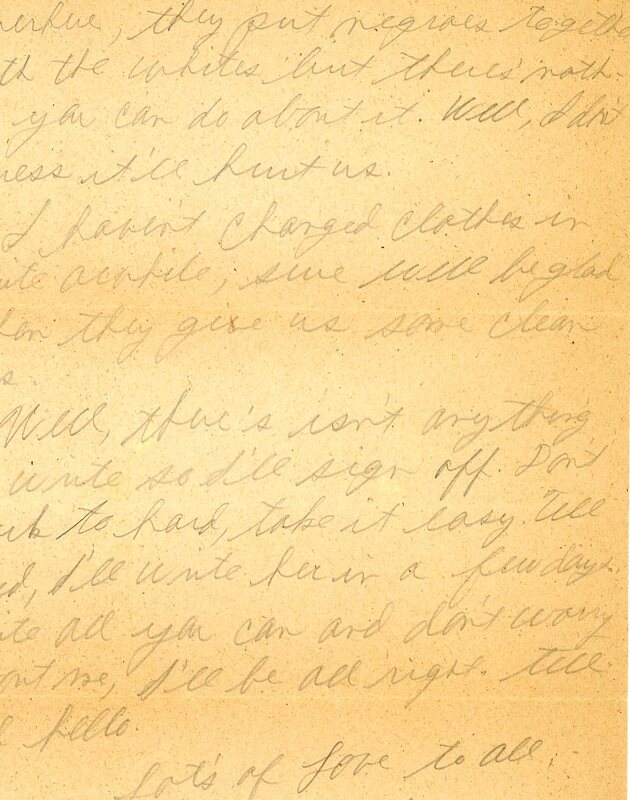 they put negroes together
the whites but there's noth-
you can do about it. Well, I don't
it'll hurt us.
I haven't changed clothes in
awhile, sure will be glad
they give us some clean
Well, there's isn't anything
write so I'll sign off. Don't
to hard, take it easy. Tell
I'll write her in a few days.
all you can and don't worry
me, I'll be all right. Tell
hello.
Lot's of Love to all,